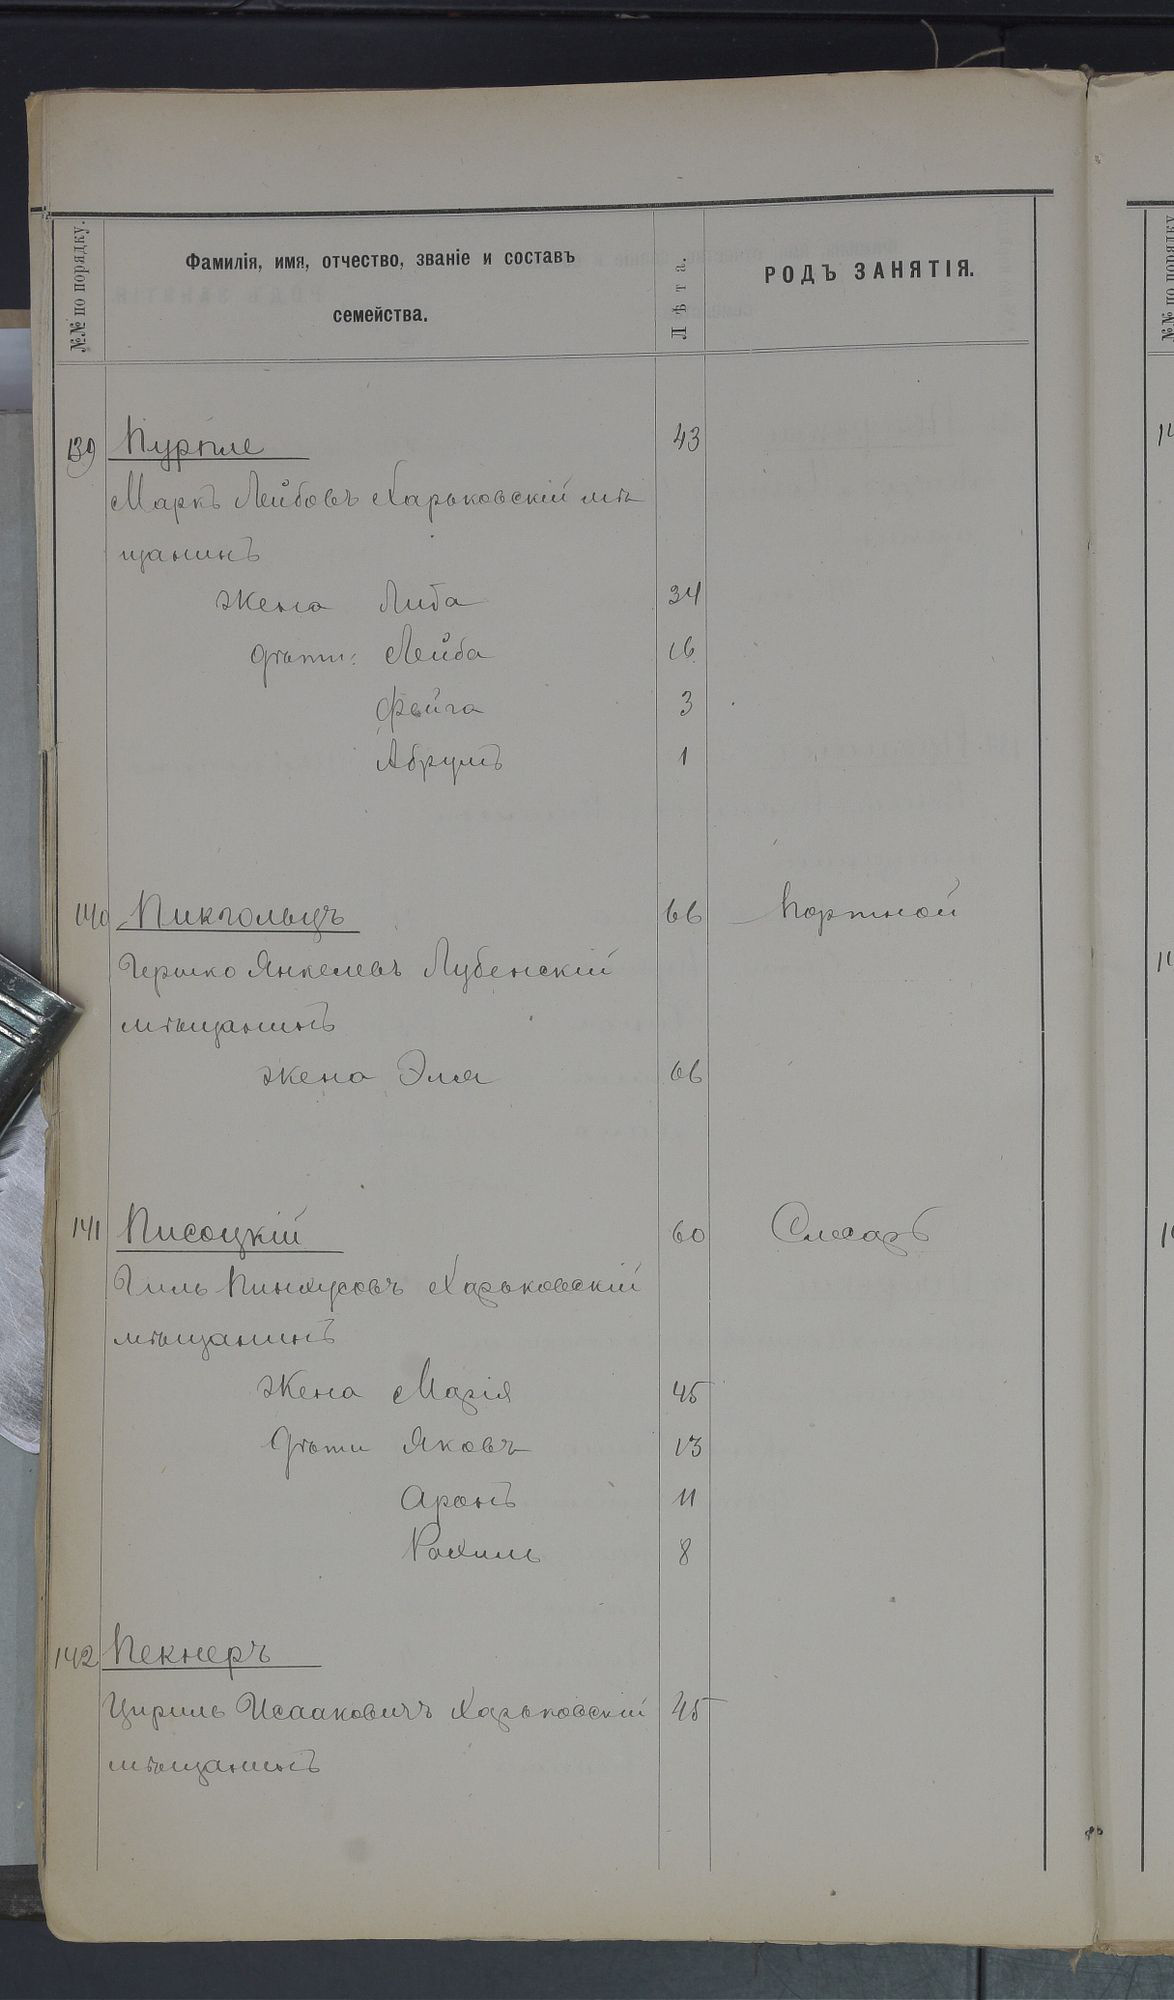 №№ по порядку.
Фамилія, имя, отчество, званіе и составъ
семейства.
Лѣта.
РОДЪ ЗАНЯТІЯ.
139 Пурпле 43
Маркъ Лейбовъ Харьковскій мѣ
щанинъ
Жена Либа 34
дѣти: Лейба 16
Фейга 3
Абрумъ 1
140 Пикгольцъ 66 Портной
Гершко Янкелевъ Лубенскій
мѣщанинъ
Жена Эля 66
141 Писоцкій 60 Слесарь
Гиль Пинхусовъ Харьковскій
мѣщанинъ
Жена Марія 45
Дѣти Яковъ 13
Аронъ 11
Рахиль 8
142 Пекнеръ
Цириль Исааковичъ Харьковскій 45
мѣщанинъ
№№ по порядку
14
14